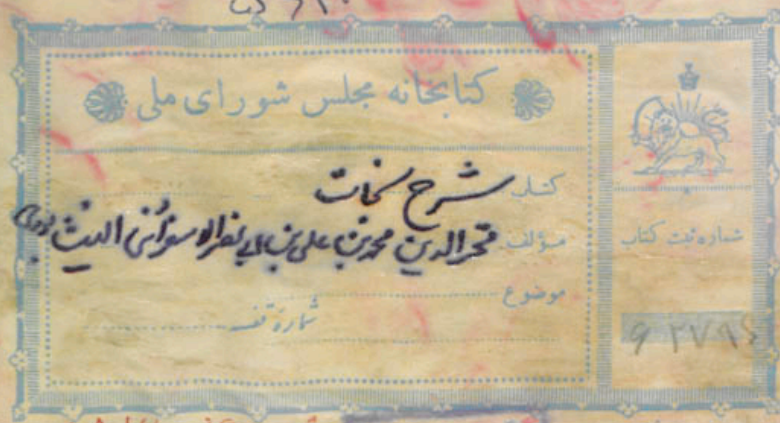 کتابخانه مجلس شورای ملی
کتاب شرح نجات
مؤلف فخرالدین محمد بن علی بن ابی نصر الاسفرائنی النیشابوری
موضوع
شماره قفسه
شماره ثبت کتاب